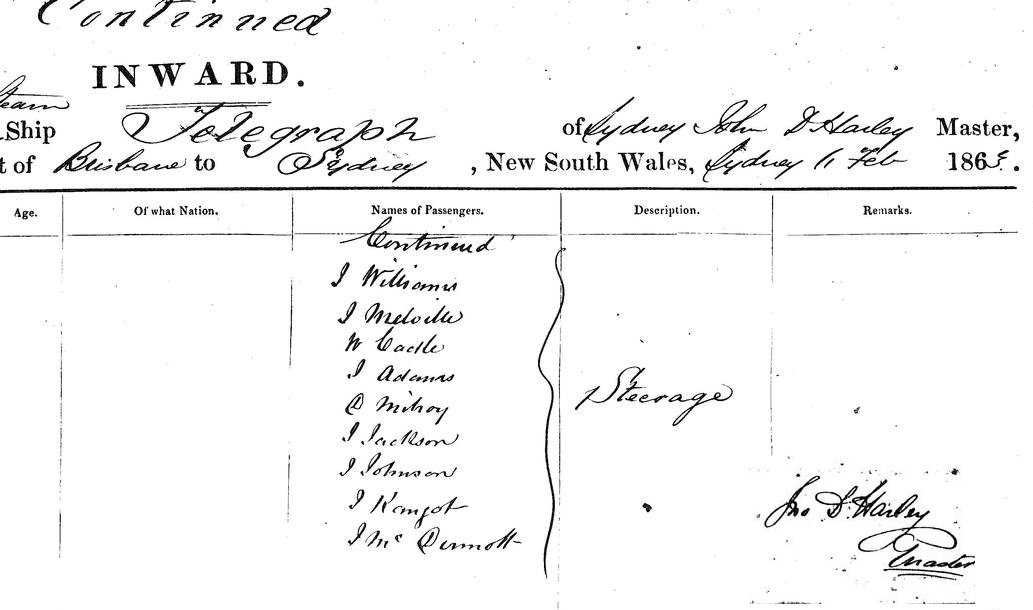 Continued
INWARD.
Steam
Ship Telegraph of Sydney John D Harley Master,
t of Brisbane to Sydney , New South Wales, Sydney 11 Feb 1865 .
Age. Of what Nation. Names of Passengers. Description. Remarks.
Continued
J Williams
J Melville
W Cadle
J Adams
D Milroy
J Jackson
J Johnson
J
J Mc Dermott
Steerage
Jno D Harley
Master